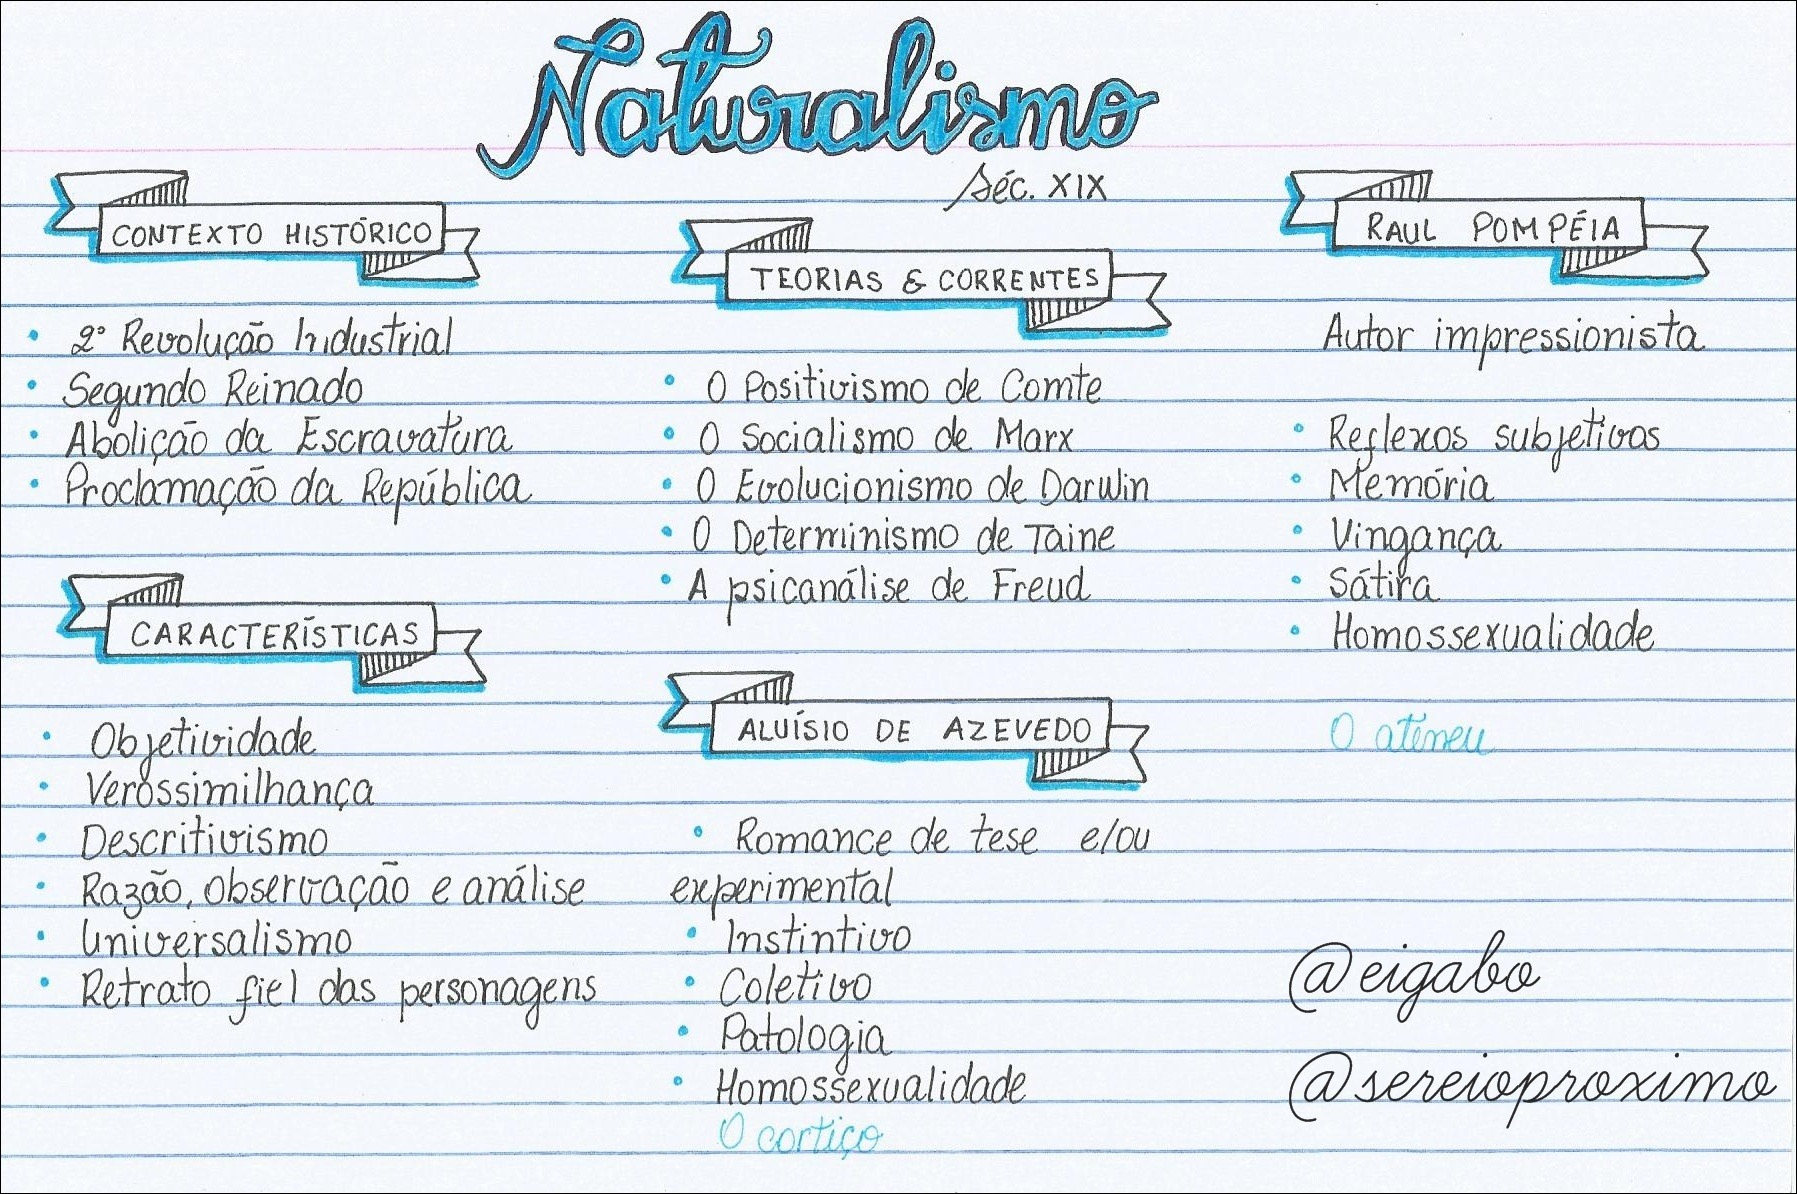 Naturalismo
Séc. XIX
CONTEXTO HISTÓRICO
• 2° Revolução Industrial
• Segundo Reinado
• Abolição da Escravatura
• Proclamação da República
CARACTERÍSTICAS
• Objetividade
• Verossimilhança
• Descritivismo
• Razão, observação e análise
• Universalismo
• Retrato fiel das personagens
TEORIAS & CORRENTES
• O Positivismo de Comte
• O Socialismo de Marx
• O Evolucionismo de Darwin
• O Determinismo de Taine
• A psicanálise de Freud
ALUÍSIO DE AZEVEDO
• Romance de tese e/ou
experimental
• Instintivo
• Coletivo
• Patologia
• Homossexualidade
O cortiço
RAUL POMPÉIA
Autor impressionista
• Reflexos subjetivos
• Memória
• Vingança
• Sátira
• Homossexualidade
O ateneu
@eigabo
@sereioproximo